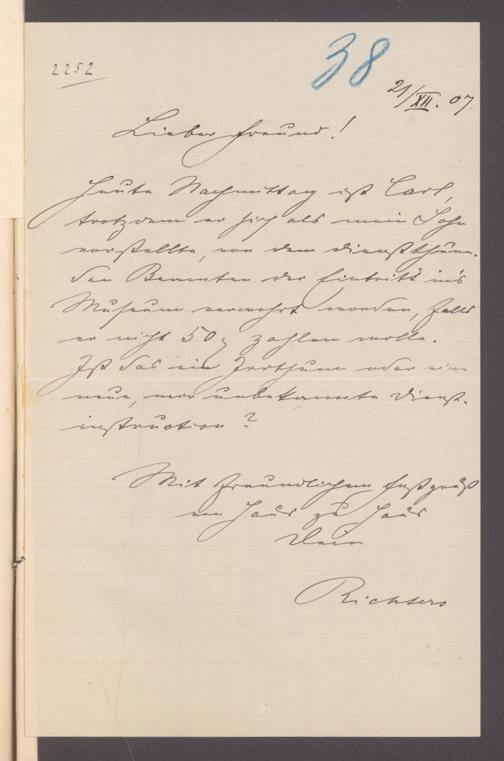 2252
38
21/XII. 07.
Lieber Freund!
Heute Nachmittag ist Carl,
trotzdem er sich als mein Sohn
vorstellte, von dem dienstthuen-
den Beamten der Eintritt in's
Museum verwehrt worden, falls
er nicht 50 ₰ zahlen wolle.
Ist das ein Irrthum oder eine
neue, mir unbekannte Dienst-
instruction?
Mit freundlichem
von Haus zu Haus
Dein
Richters